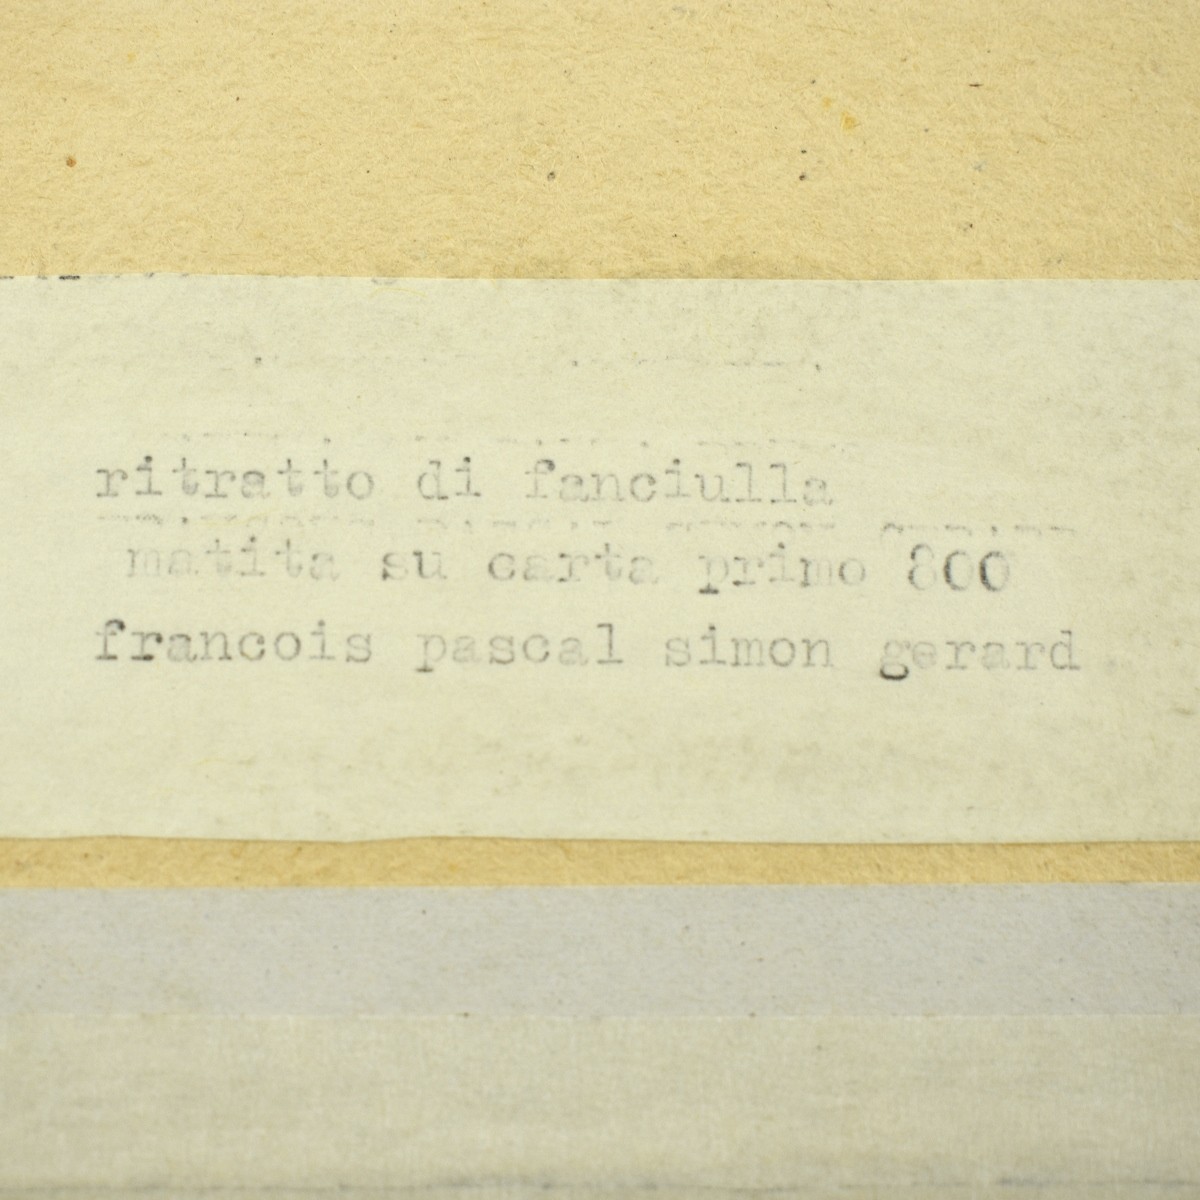 ritratto di fanciulla
matita su carta primo 800
francois pascal simon gerard